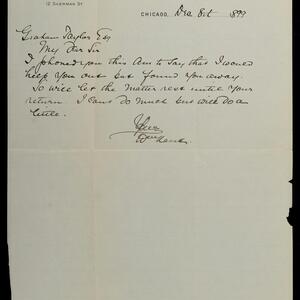 12 SHERMAN ST
CHICAGO, Dec 8th 1899
Graham Taylor Esq
My Dear Sir
I phoned you this Am to Say that I would
help you out but found you away.
So will let the matter rest until your
return. I cant do much but will do a
little.
Yours